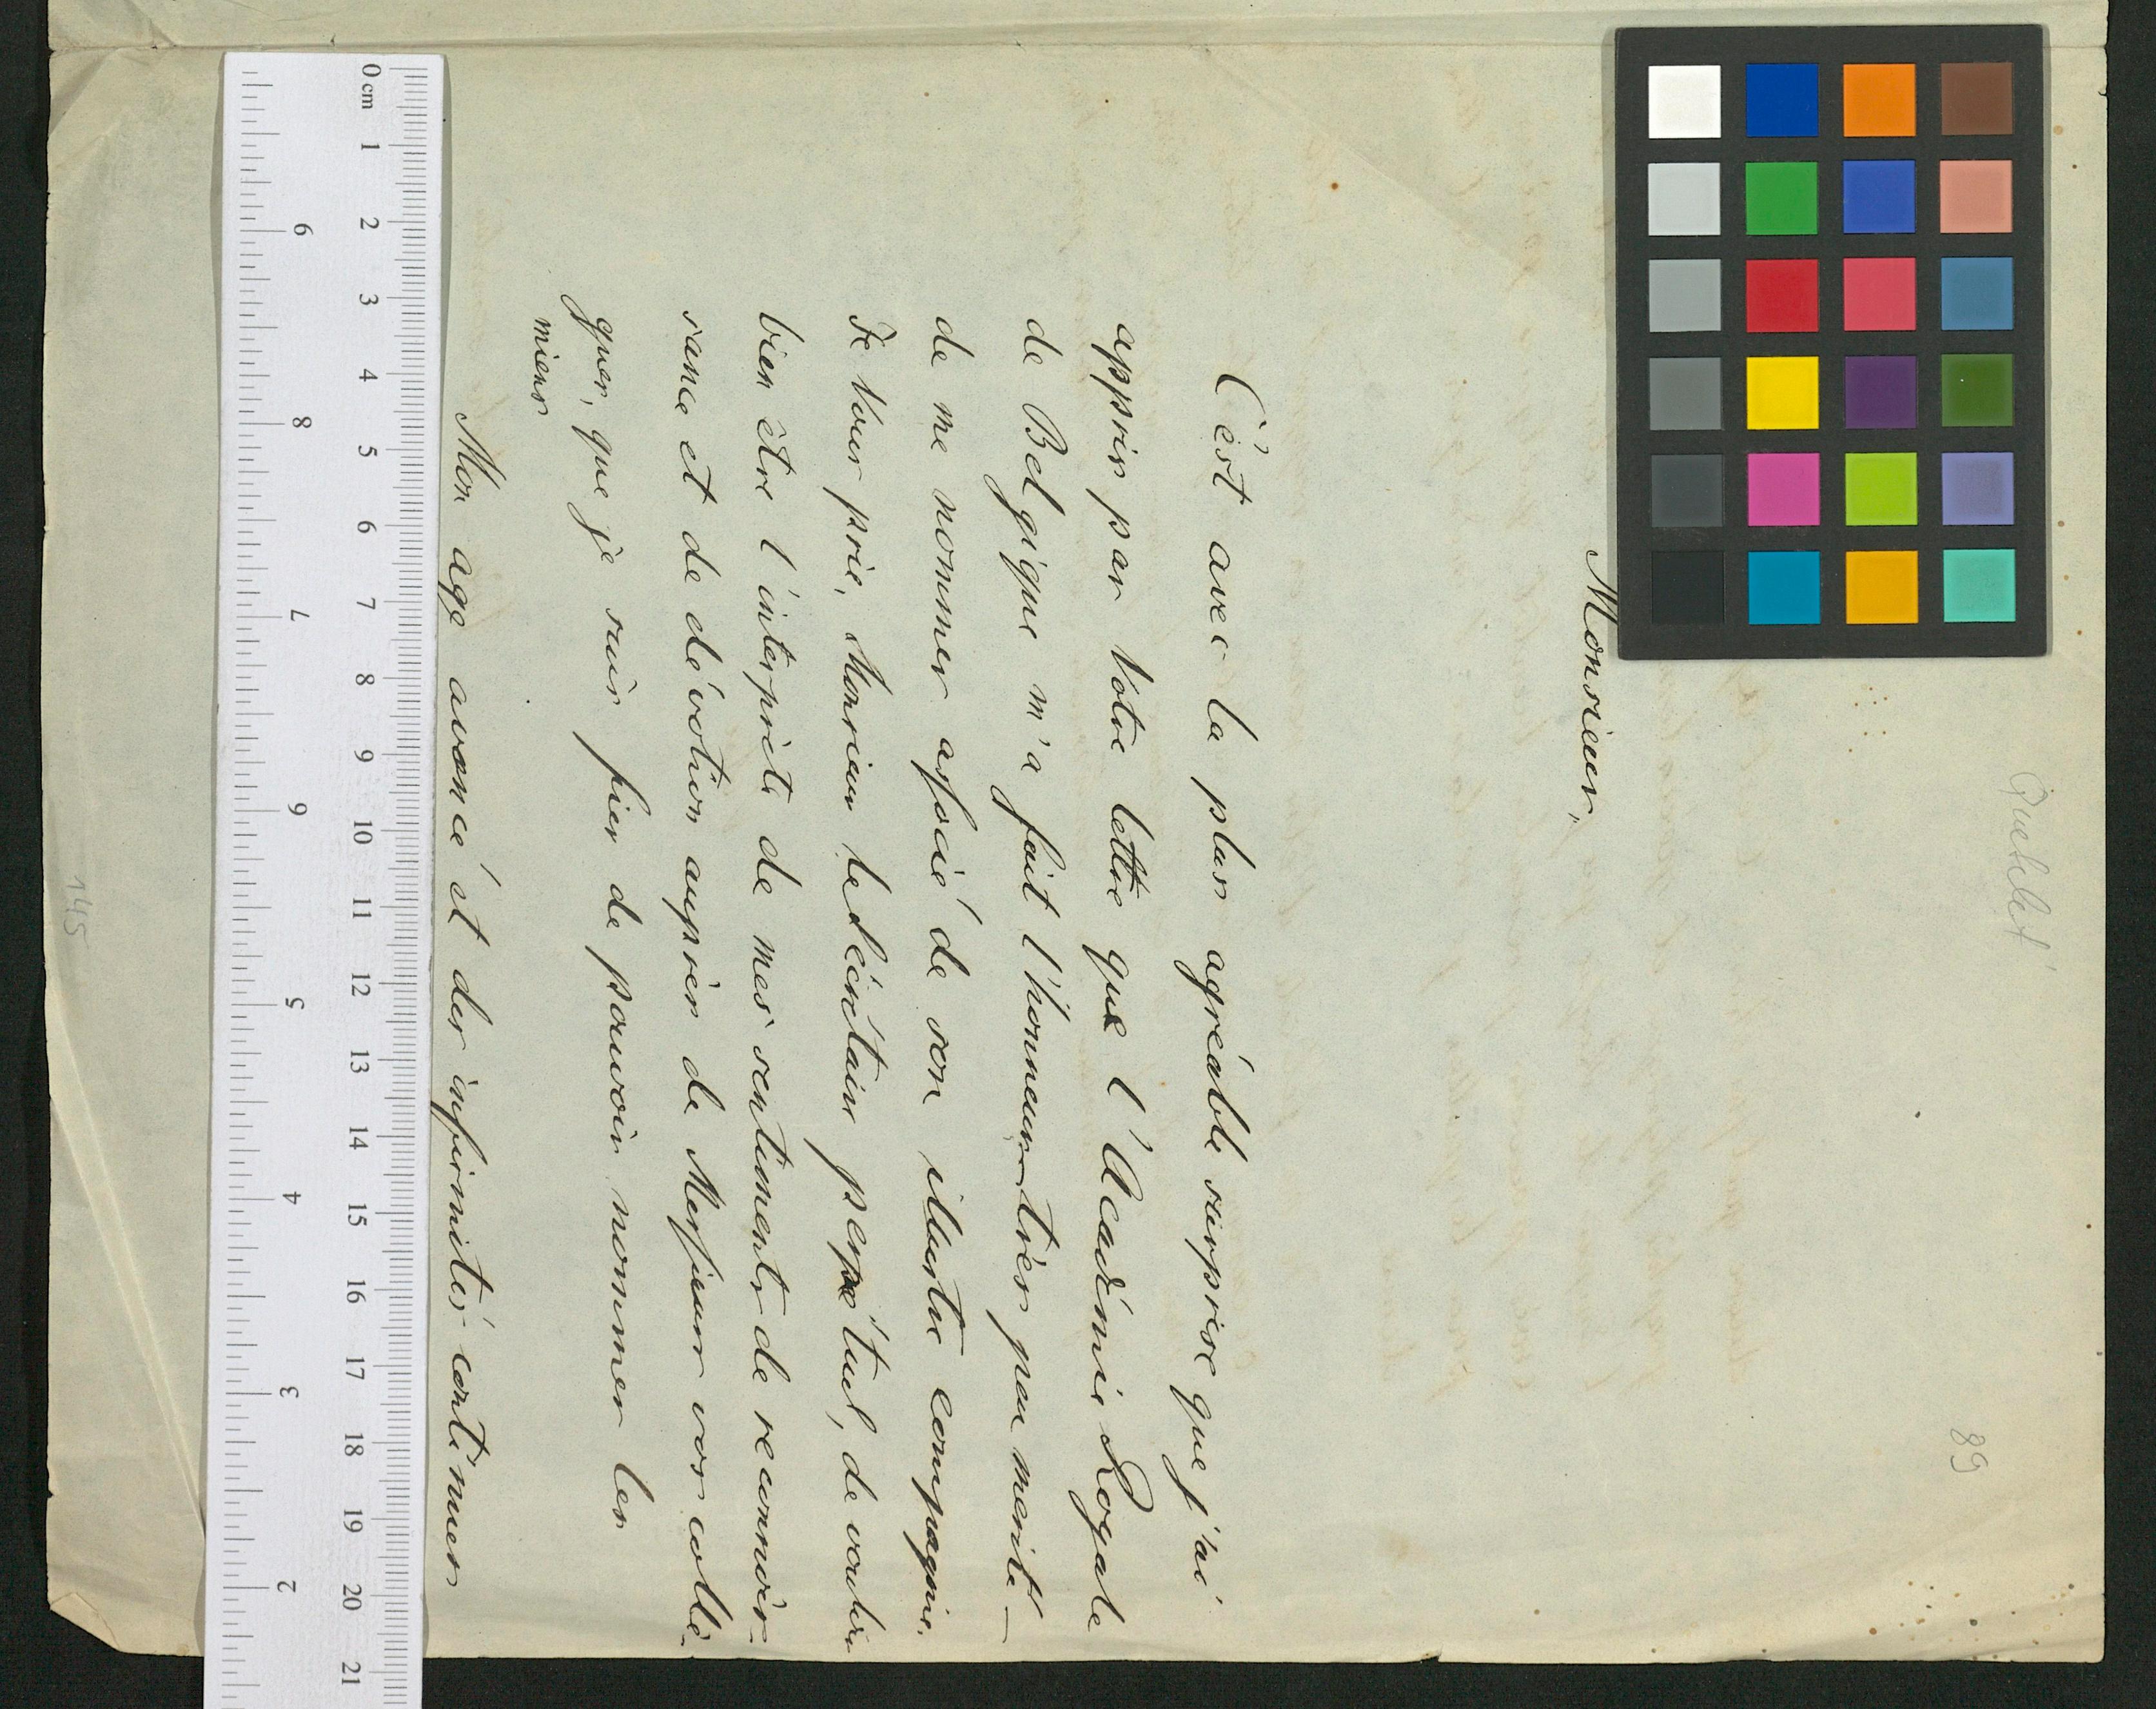 Quetelet
89
Monsieur,
C'est avec la plus agréable surprise que j'ai
appris par Votre lettre que l'Académie Royale
de Belgique m'a fait l'honneur – très peu merité –
de me nommer associé de son illustre compagnie.
Je Vous prie, Monsieur le Sécrétaire perpétuel, de vouloir
bien être l'interprète de mes sentiments de reconnois-
sance et de dévotion auprès de Messieurs vos collè-
gues, que je suis fier de pouvoir nommer les
miens
Mon age avancé et des infirmités continues
145
0 cm 1 2 3 4 5 6 7 8 9 10 11 12 13 14 15 16 17 18 19 20 21
9 8 7 6 5 4 3 2